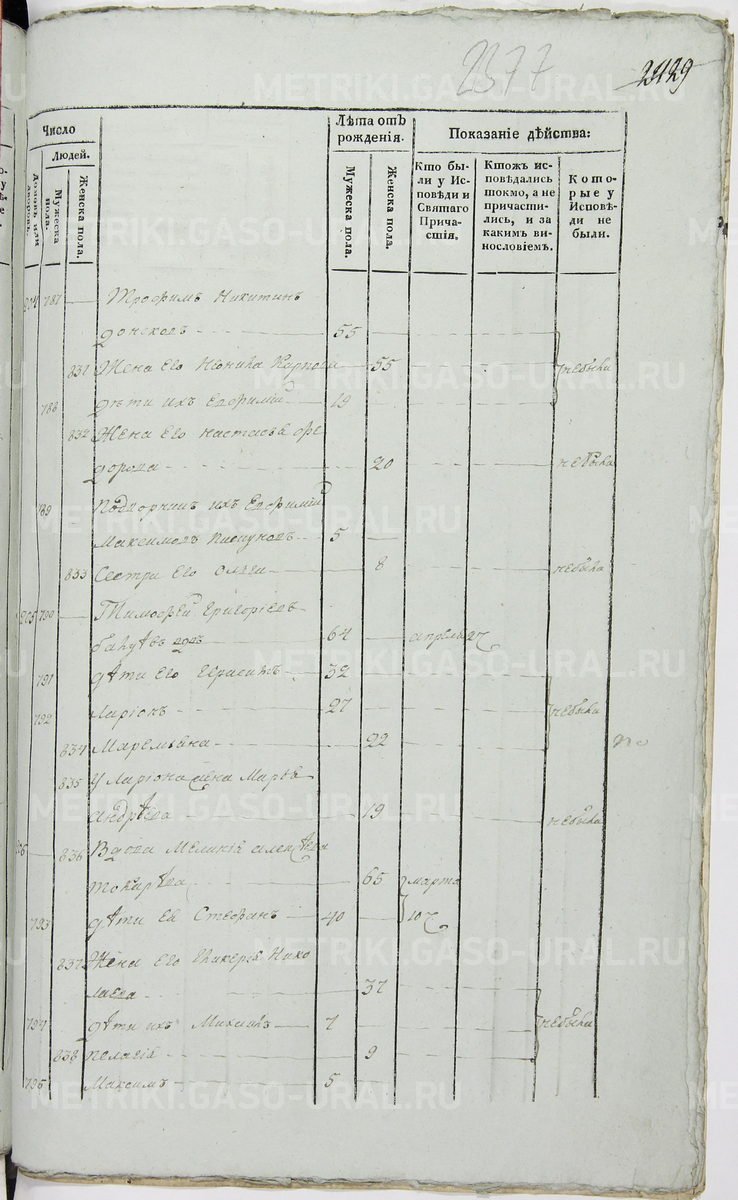 2377
2429
Число
Людей.
Домовъ или дворовъ.
Мужеска пола.
Женска пола.
Лѣта отъ рожденія.
Мужеска пола.
Женска пола.
Показаніе дѣйства:
Кто были у Исповѣди и Святаго Причастія.
Ктожъ исповѣдались токмо, а не причастились, и за какимъ винословіемъ.
Которые у Исповѣди не были.
204 787 Трофимъ Никитинъ
55
831 Жена Его 55 небыли
788 дѣти ихъ Евфимий 19
832 Жена Его настасья фе
дорова 20 небыла
789 ихъ
Максимовъ 5
833 Сестри Его 8 небыла
205 790 Тимофей Григорієвъ
64 апрель 27
791 дѣти Его Герасимъ 32
792 Ларіонъ 27 небыли
834 Маремьяна 22
835 У Ларіона Жена Марья
андрѣева 19 небыла
836 Вдова Меланія алексѣева
токарѣва 65 марта
793 дѣти Ея Стефанъ 40 10
837 Жена Его Гликерія Нико
лаева 37
794 дѣти ихъ Михаилъ 7 небыли
838 пелагія 9
795 Максимъ 5
METRIKI.GASO-URAL.RU